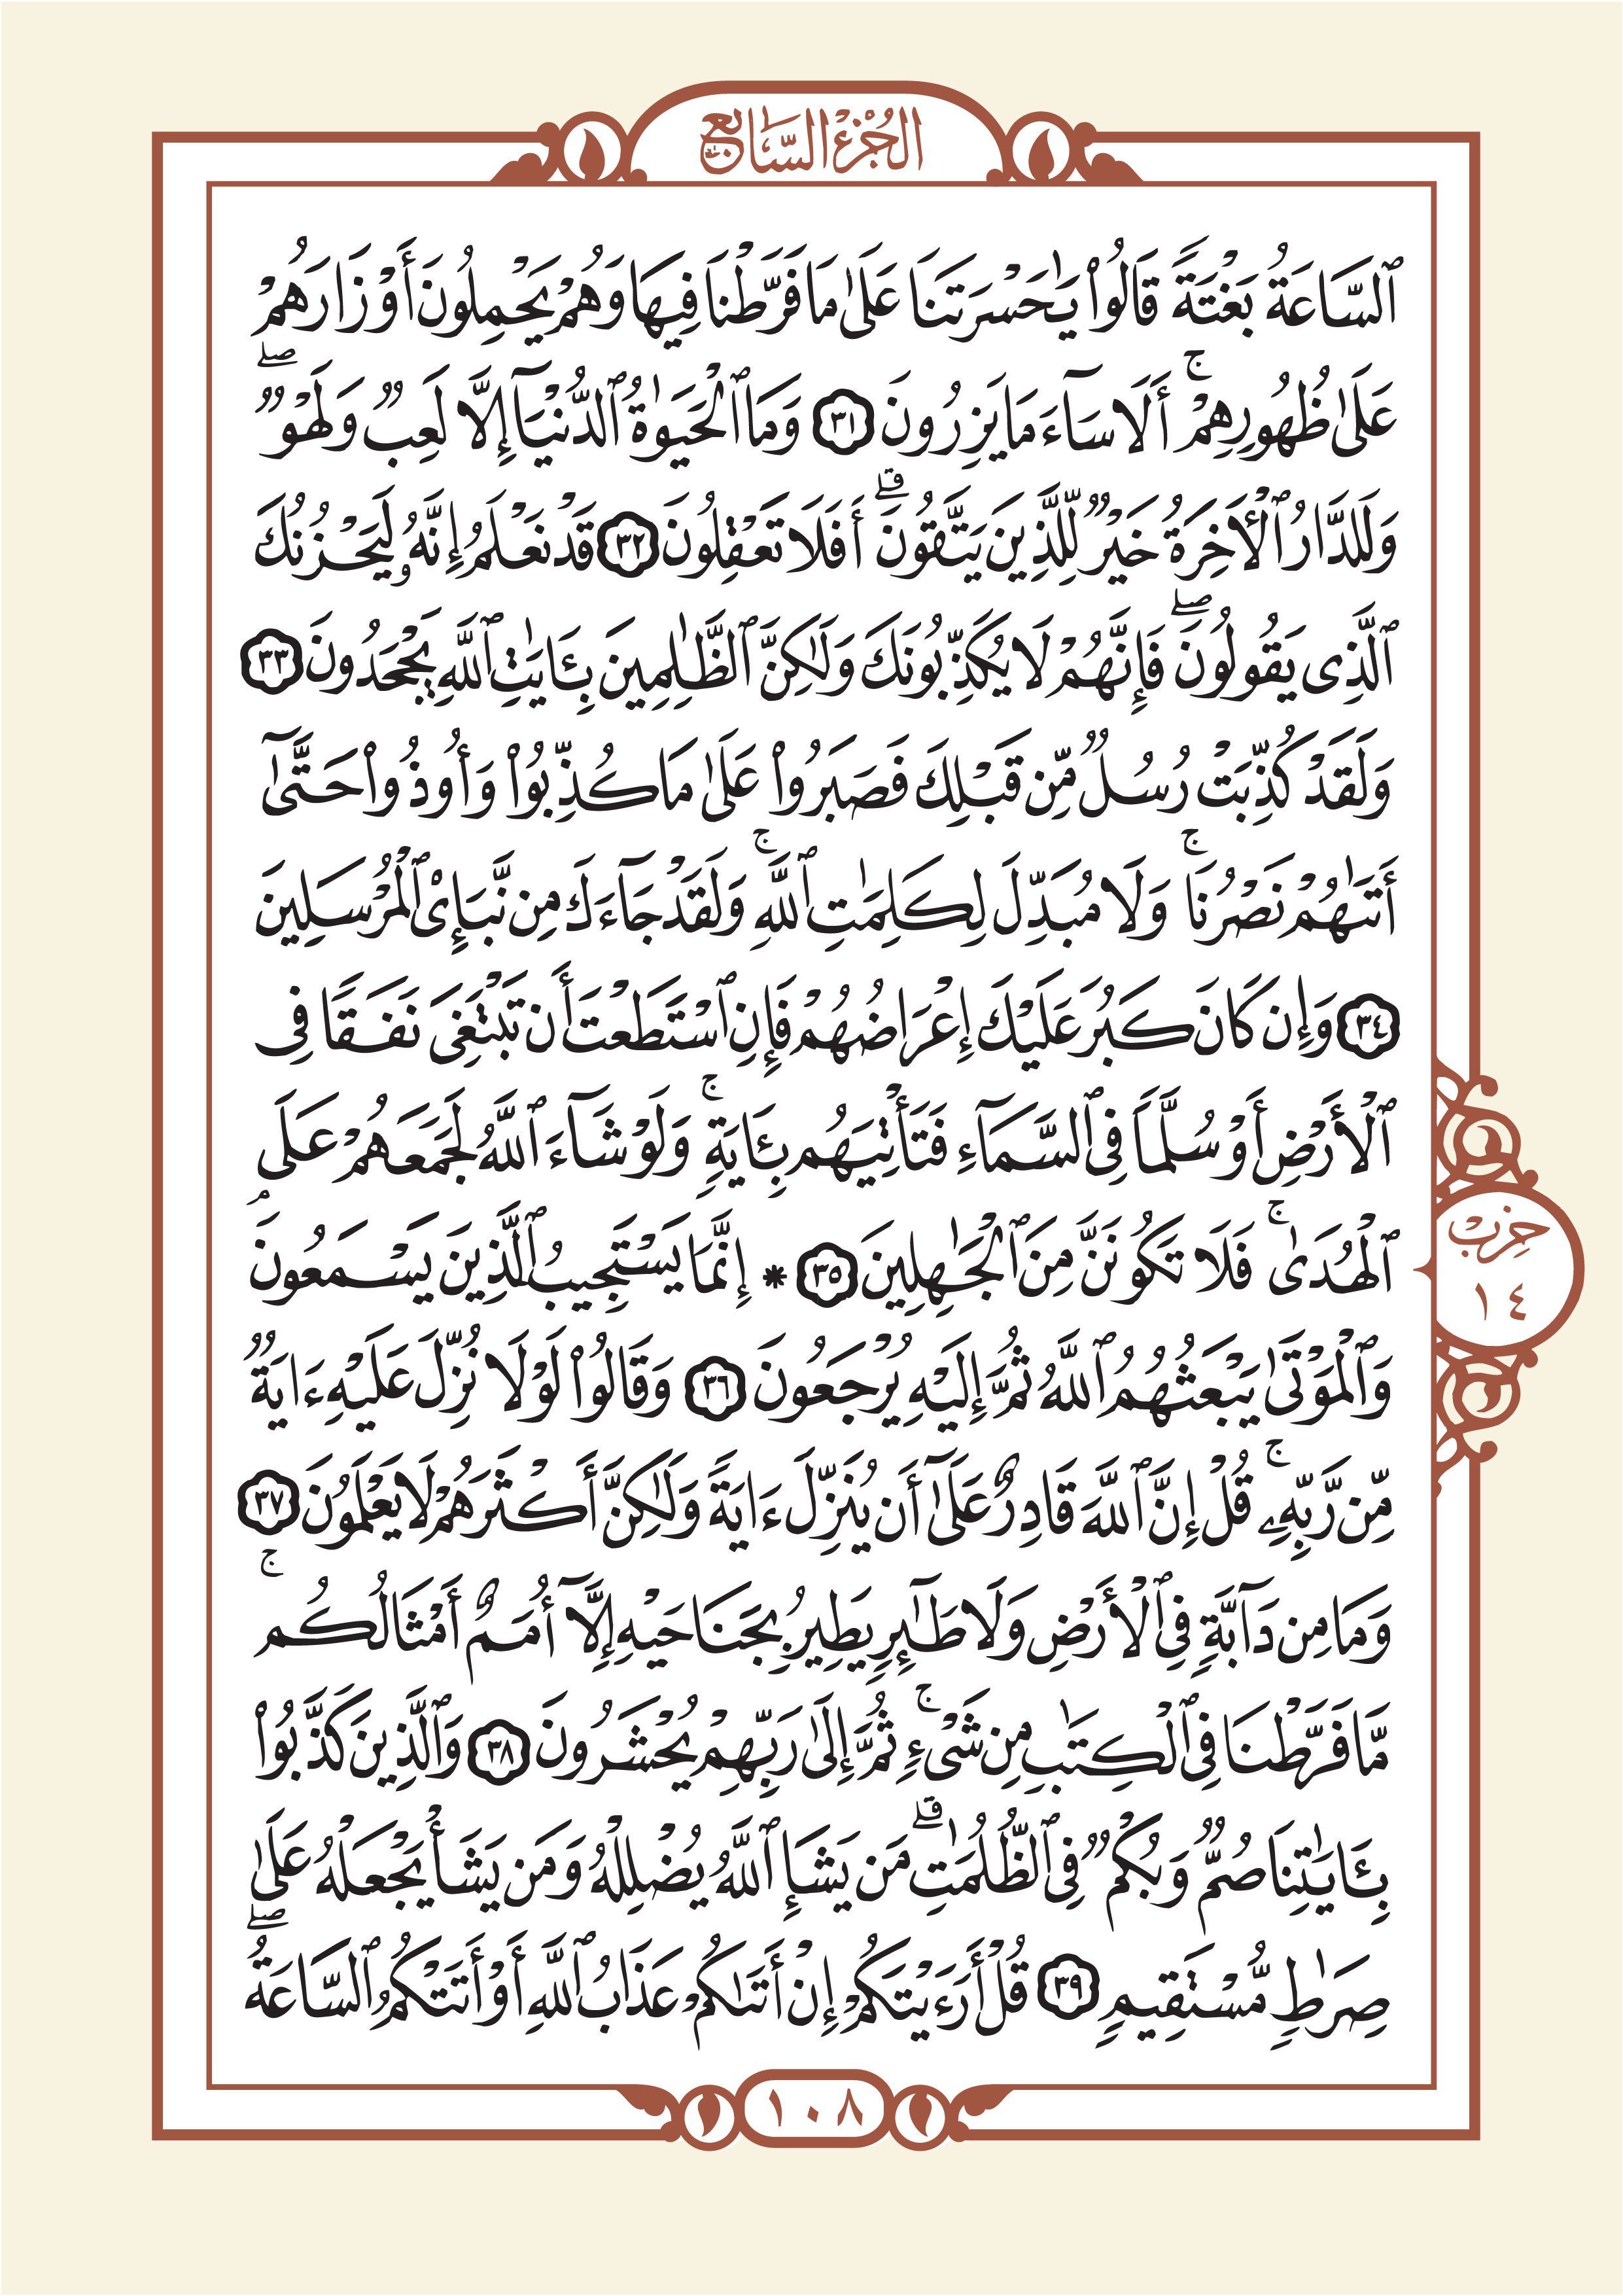 الجُزْءُ السَّابِعُ
ٱلسَّاعَةُ بَغْتَةً قَالُوا۟ يَٰحَسْرَتَنَا عَلَىٰ مَا فَرَّطْنَا فِيهَا وَهُمْ يَحْمِلُونَ أَوْزَارَهُمْ
عَلَىٰ ظُهُورِهِمْ ۚ أَلَا سَآءَ مَا يَزِرُونَ ٣١ وَمَا ٱلْحَيَوٰةُ ٱلدُّنْيَآ إِلَّا لَعِبٌ وَلَهْوٌ ۖ
وَلَلدَّارُ ٱلْأَخِرَةُ خَيْرٌ لِّلَّذِينَ يَتَّقُونَ ۗ أَفَلَا تَعْقِلُونَ ٣٢ قَدْ نَعْلَمُ إِنَّهُۥ لَيَحْزُنُكَ
ٱلَّذِى يَقُولُونَ ۖ فَإِنَّهُمْ لَا يُكَذِّبُونَكَ وَلَٰكِنَّ ٱلظَّٰلِمِينَ بِـَٔايَٰتِ ٱللَّهِ يَجْحَدُونَ ٣٣
وَلَقَدْ كُذِّبَتْ رُسُلٌ مِّن قَبْلِكَ فَصَبَرُوا۟ عَلَىٰ مَا كُذِّبُوا۟ وَأُوذُوا۟ حَتَّىٰٓ
أَتَىٰهُمْ نَصْرُنَا ۚ وَلَا مُبَدِّلَ لِكَلِمَٰتِ ٱللَّهِ ۚ وَلَقَدْ جَآءَكَ مِن نَّبَإِى۟ ٱلْمُرْسَلِينَ
٣٤ وَإِن كَانَ كَبُرَ عَلَيْكَ إِعْرَاضُهُمْ فَإِنِ ٱسْتَطَعْتَ أَن تَبْتَغِىَ نَفَقًا فِى
ٱلْأَرْضِ أَوْ سُلَّمًا فِى ٱلسَّمَآءِ فَتَأْتِيَهُم بِـَٔايَةٍ ۚ وَلَوْ شَآءَ ٱللَّهُ لَجَمَعَهُمْ عَلَى
ٱلْهُدَىٰ ۚ فَلَا تَكُونَنَّ مِنَ ٱلْجَٰهِلِينَ ٣٥ * إِنَّمَا يَسْتَجِيبُ ٱلَّذِينَ يَسْمَعُونَ ۘ
حِزْب
١٤
وَٱلْمَوْتَىٰ يَبْعَثُهُمُ ٱللَّهُ ثُمَّ إِلَيْهِ يُرْجَعُونَ ٣٦ وَقَالُوا۟ لَوْلَا نُزِّلَ عَلَيْهِ ءَايَةٌ
مِّن رَّبِّهِۦ ۚ قُلْ إِنَّ ٱللَّهَ قَادِرٌ عَلَىٰٓ أَن يُنَزِّلَ ءَايَةً وَلَٰكِنَّ أَكْثَرَهُمْ لَا يَعْلَمُونَ ٣٧
وَمَا مِن دَآبَّةٍ فِى ٱلْأَرْضِ وَلَا طَٰٓئِرٍ يَطِيرُ بِجَنَاحَيْهِ إِلَّآ أُمَمٌ أَمْثَالُكُم ۚ
مَّا فَرَّطْنَا فِى ٱلْكِتَٰبِ مِن شَىْءٍ ۚ ثُمَّ إِلَىٰ رَبِّهِمْ يُحْشَرُونَ ٣٨ وَٱلَّذِينَ كَذَّبُوا۟
بِـَٔايَٰتِنَا صُمٌّ وَبُكْمٌ فِى ٱلظُّلُمَٰتِ ۗ مَن يَشَإِ ٱللَّهُ يُضْلِلْهُ وَمَن يَشَأْ يَجْعَلْهُ عَلَىٰ
صِرَٰطٍ مُّسْتَقِيمٍ ٣٩ قُلْ أَرَءَيْتَكُمْ إِنْ أَتَىٰكُمْ عَذَابُ ٱللَّهِ أَوْ أَتَتْكُمُ ٱلسَّاعَةُ ۖ
١٠٨